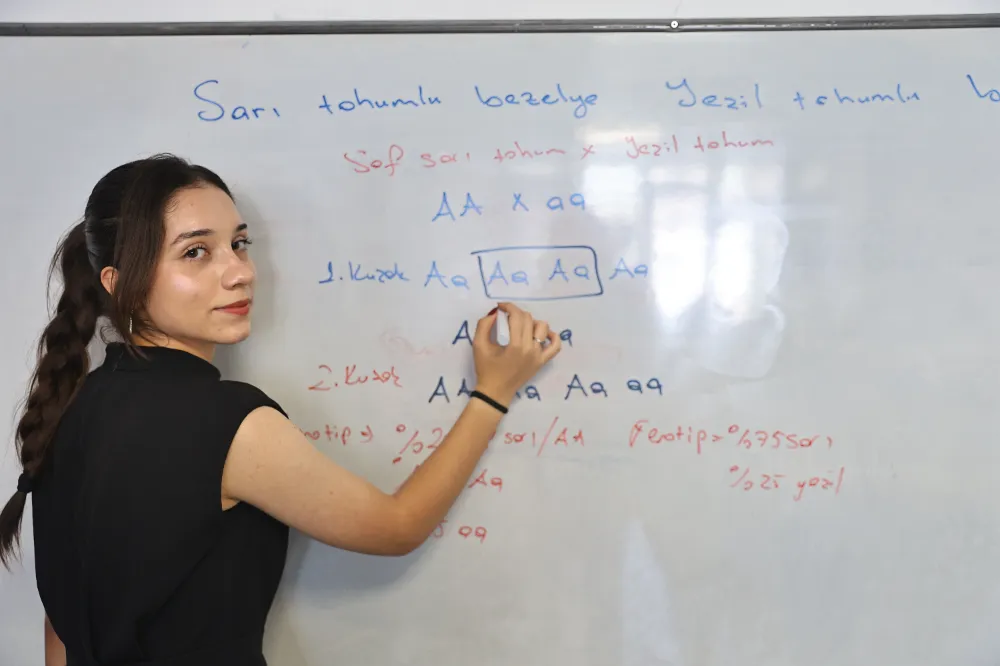 Sarı tohumlu bezelye Yezil tohumlu b
Saf sarı tohum x Yezil tohum
AA x aa
1. Kuzak Aa Aa Aa Aa
A a
2. Kuzak AA Aa Aa aa
notip → %2 sarı/AA Fenotip = %75 sarı
Aa %25 yezil
5 aa